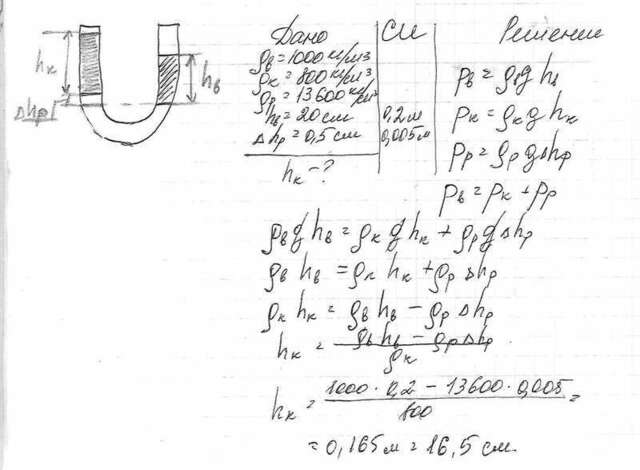 Дано СИ Решение
ρв = 1000 кг/м³
ρк = 800 кг/м³
ρр = 13600 кг/м³
hв = 20 см 0,2 м
Δhр = 0,5 см 0,005 м
hк - ?
hк
hв
Δhр
pв = ρв g hв
pк = ρк g hк
pр = ρр g Δhр
pв = pк + pр
ρв g hв = ρк g hк + ρр g Δhр
ρв hв = ρк hк + ρр Δhр
ρк hк = ρв hв - ρр Δhр
hк = (ρв hв - ρр Δhр) / ρк
hк = (1000 · 0,2 - 13600 · 0,005) / 800 =
= 0,165 м = 16,5 см.